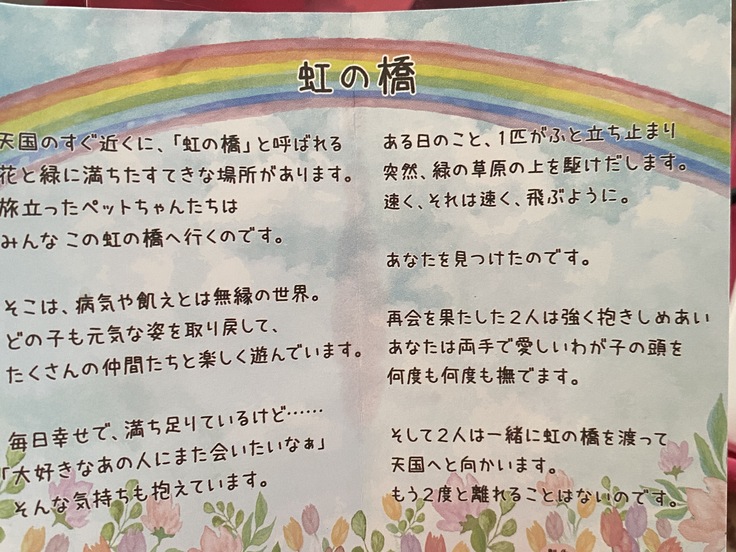 虹の橋
天国のすぐ近くに、「虹の橋」と呼ばれる
花と緑に満ちたすてきな場所があります。
旅立ったペットちゃんたちは
みんなこの虹の橋へ行くのです。
そこは、病気や飢えとは無縁の世界。
どの子も元気な姿を取り戻して、
たくさんの仲間たちと楽しく遊んでいます。
毎日幸せで、満ち足りているけど……
「大好きなあの人にまた会いたいなぁ」
そんな気持ちも抱えています。
ある日のこと、1匹がふと立ち止まり
突然、緑の草原の上を駆けだします。
速く、それは速く、飛ぶように。
あなたを見つけたのです。
再会を果たした2人は強く抱きしめあい
あなたは両手で愛しいわが子の頭を
何度も何度も撫でます。
そして2人は一緒に虹の橋を渡って
天国へと向かいます。
もう2度と離れることはないのです。